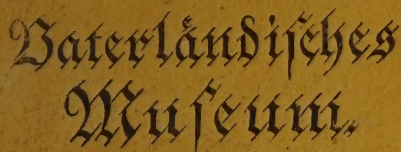 Vaterländiſches
Muſeum.